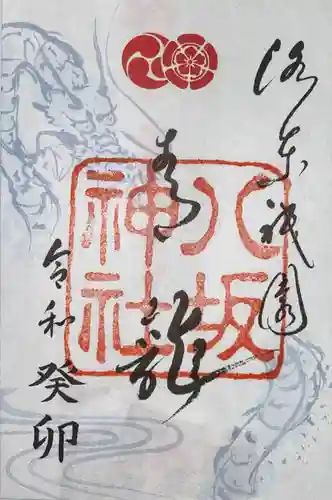 洛東祇園
青龍
令和癸卯
八坂
神社